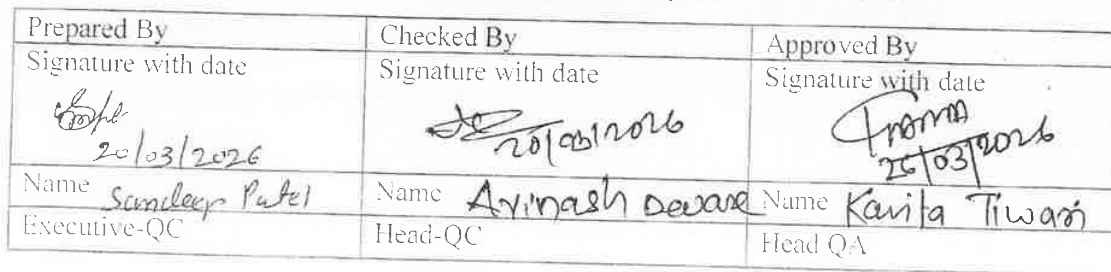 Prepared By Checked By Approved By
Signature with date Signature with date Signature with date
20/03/2026 20/03/2026 25/03/2026
Name Sandeep Patel Name Avinash Deware Name Kavita Tiwari
Executive-QC Head-QC Head QA